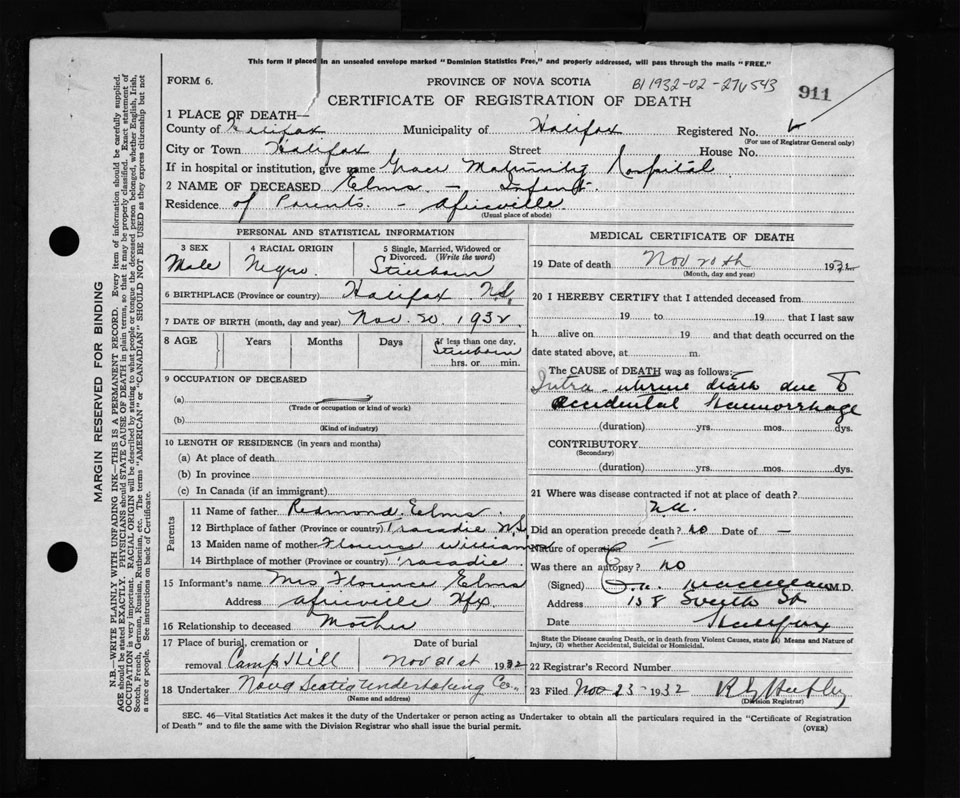 This form if placed in an unsealed envelope marked "Dominion Statistics Free," and properly addressed, will pass through the mails "FREE."
FORM 6.
PROVINCE OF NOVA SCOTIA
911
CERTIFICATE OF REGISTRATION OF DEATH
1 PLACE OF DEATH—
County of Halifax Municipality of Halifax Registered No.
(For use of Registrar General only)
City or Town Halifax Street House No.
If in hospital or institution, give name Grace Maternity Hospital
2 NAME OF DECEASED Elms - Infant
Residence of Parents. - Africville
(Usual place of abode)
PERSONAL AND STATISTICAL INFORMATION
3 SEX 4 RACIAL ORIGIN 5 Single, Married, Widowed or Divorced. (Write the word)
Male Negro. Stillborn
6 BIRTHPLACE (Province or country) Halifax N.S.
7 DATE OF BIRTH (month, day and year) Nov. 20. 1932
8 AGE Years Months Days If less than one day,
Stillborn
hrs. or min.
9 OCCUPATION OF DECEASED
(a)
(Trade or occupation or kind of work)
(b)
(Kind of industry)
10 LENGTH OF RESIDENCE (in years and months)
(a) At place of death
(b) In province
(c) In Canada (if an immigrant)
Parents
11 Name of father Redmond. Elms.
12 Birthplace of father (Province or country) Tracadie N.S.
13 Maiden name of mother Florence Williams
14 Birthplace of mother (Province or country) Tracadie
15 Informant's name Mrs Florence Elms
Address Africville Hfx
16 Relationship to deceased Mother
17 Place of burial, cremation or Date of burial
removal Camp Hill Nov 21st 1932
18 Undertaker Nova Scotia Undertaking Co.
(Name and address)
MEDICAL CERTIFICATE OF DEATH
19 Date of death Nov 20th 1932
(Month, day and year)
20 I HEREBY CERTIFY that I attended deceased from
19 to 19 that I last saw
h alive on 19 and that death occurred on the
date stated above, at m.
The CAUSE of DEATH was as follows:
Intra-uterine death due to
accidental haemorrhage
(duration) yrs. mos. dys.
CONTRIBUTORY
(Secondary)
(duration) yrs. mos. dys.
21 Where was disease contracted if not at place of death?
Did an operation precede death? no Date of —
Nature of operation
Was there an autopsy? no
(Signed) M.D.
Address 158 South St
Date Halifax
State the Disease causing Death, or in death from Violent Causes, state (1) Means and Nature of Injury, (2) whether Accidental, Suicidal or Homicidal.
22 Registrar's Record Number
23 Filed Nov 23 - 1932
(Division Registrar)
SEC. 46—Vital Statistics Act makes it the duty of the Undertaker or person acting as Undertaker to obtain all the particulars required in the "Certificate of Registration
of Death" and to file the same with the Division Registrar who shall issue the burial permit.
(OVER)
MARGIN RESERVED FOR BINDING
N.B.—WRITE PLAINLY WITH UNFADING INK—THIS IS A PERMANENT RECORD. Every item of information should be carefully supplied.
AGE should be stated EXACTLY. PHYSICIANS should STATE CAUSE OF DEATH in plain terms, so that it may be properly classified. Exact statement of
OCCUPATION is very important. RACIAL ORIGIN will be described by stating to what people or tongue the deceased person belonged, whether English, Irish,
Scotch, French, German, Russian, Ruthenian, etc. The terms "AMERICAN" or "CANADIAN" SHOULD NOT BE USED as they express citizenship but not
a race or people. See instructions on back of Certificate.